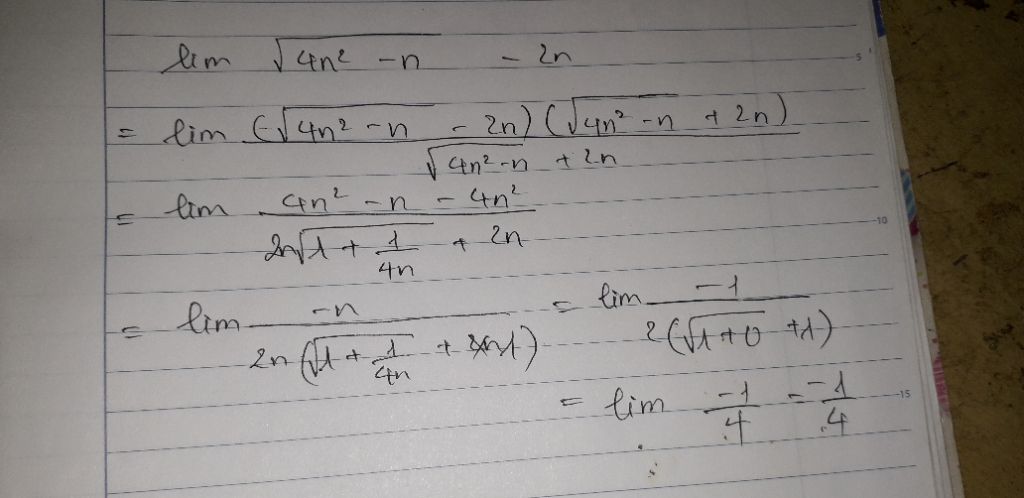 lim √(4n² - n) - 2n
= lim (√(4n² - n) - 2n) (√(4n² - n) + 2n) / (√(4n² - n) + 2n)
= lim (4n² - n - 4n²) / (2n√(1 + 1/(4n)) + 2n)
= lim -n / (2n (√(1 + 1/(4n)) + 1)) = lim -1 / (2 (√(1 + 0) + 1))
= lim -1/4 = -1/4
5
10
15